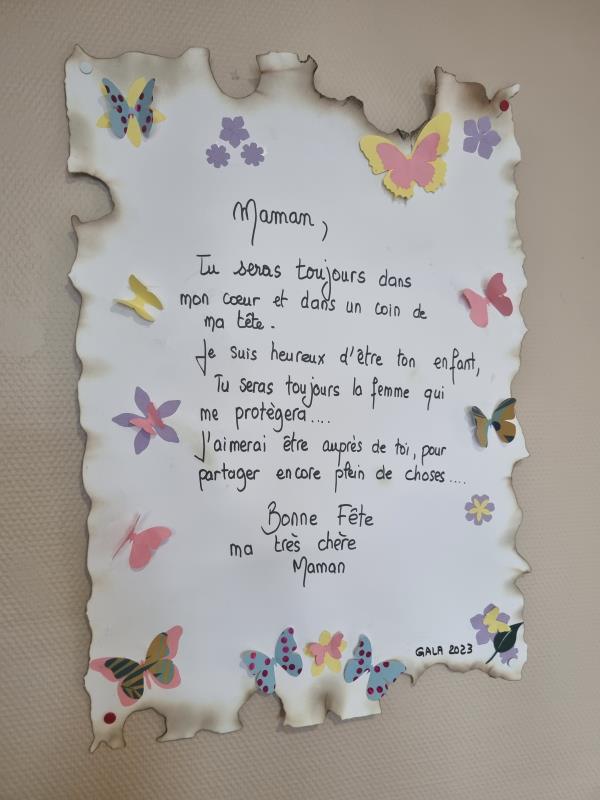 Maman,
Tu seras toujours dans
mon cœur et dans un coin de
ma tête.
Je suis heureux d'être ton enfant,
Tu seras toujours la femme qui
me protègera....
J'aimerai être auprès de toi, pour
partager encore plein de choses....
Bonne Fête
ma très chère
Maman
GALA 2023